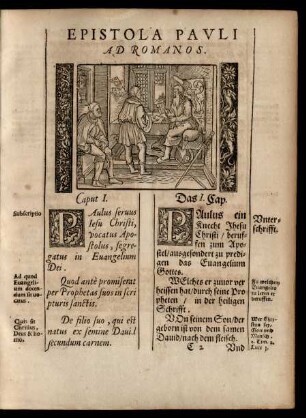 EPISTOLA PAVLI
AD ROMANOS.
Caput I.
Subscriptio
PAulus seruus
Iesu Christi,
vocatus Apo-
stolus, segre-
gatus in Euangelium
Dei.
Ad quod
Euangeli-
um
Quod antè promiserat
per Prophetas suos in scri-
pturis sanctis.
Quis sit
Christus,
Deus & ho-
mo.
De filio suo, qui est
natus ex semine Dauid
secundum carnem.
Das I. Cap.
PAulus ein
Knecht Jhesu
Christi / beruf-
fen zum Apo-
stel / ausgesondert zu predi-
gen das Euangelium
Gottes.
Vnter-
schrifft.
WElches er zuuor ver-
heissen hat / durch seine Pro-
pheten / in der heiligen
Schrifft.
VOn seinem Son / der
geborn ist von dem samen
Dauid / nach dem fleisch.
Wer Chri-
stus sey,
Gott vnd
Mensch.
C 2 Vnd